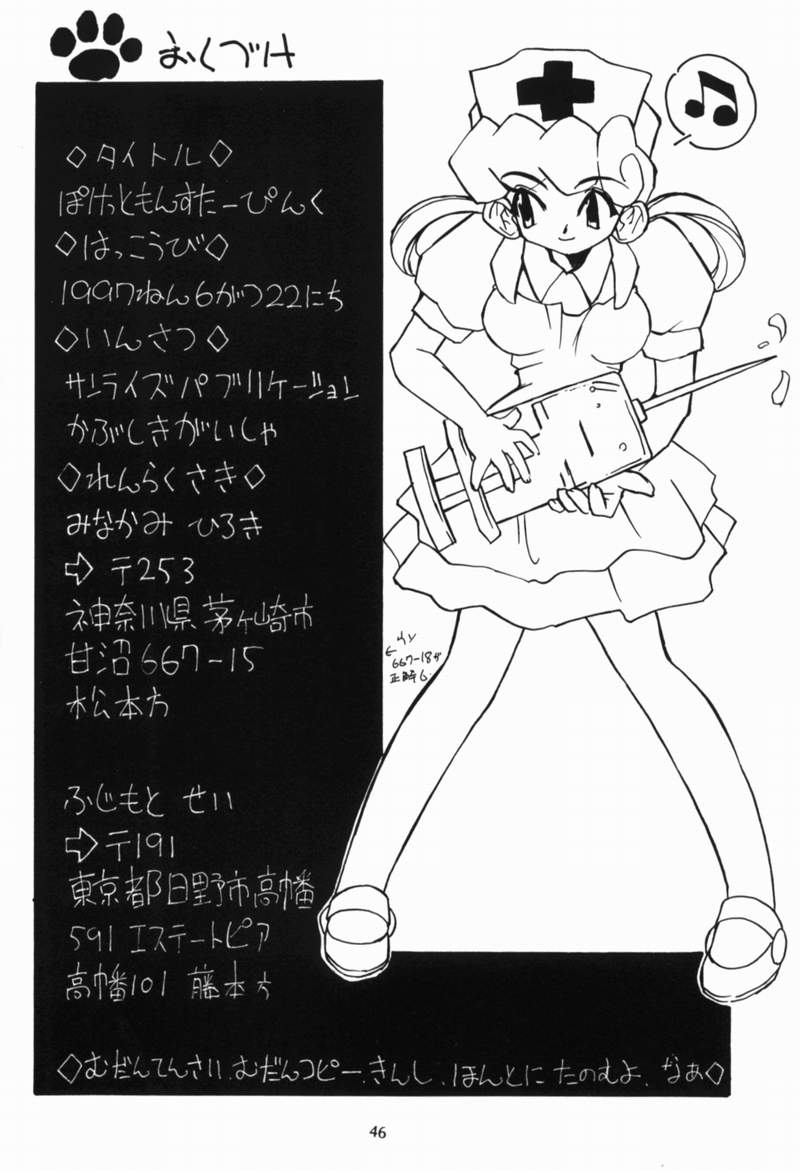 おくづけ
◇タイトル◇
ぽけっともんすたーぴんく
◇はっこうび◇
1997ねん6がつ22にち
◇いんさつ◇
サンライズパブリケーション
かぶしきがいしゃ
◇れんらくさき◇
みなかみ ひろき
⇨〒253
神奈川県茅ヶ崎市
甘沼667-15
松本方
←ウソ
667-18が
正解
ふじもと せい
⇨〒191
東京都日野市高幡
591 エステートピア
高幡101 藤本方
◇むだんてんさい、むだんコピー、きんし、ほんとに たのむよ、なぁ◇
46